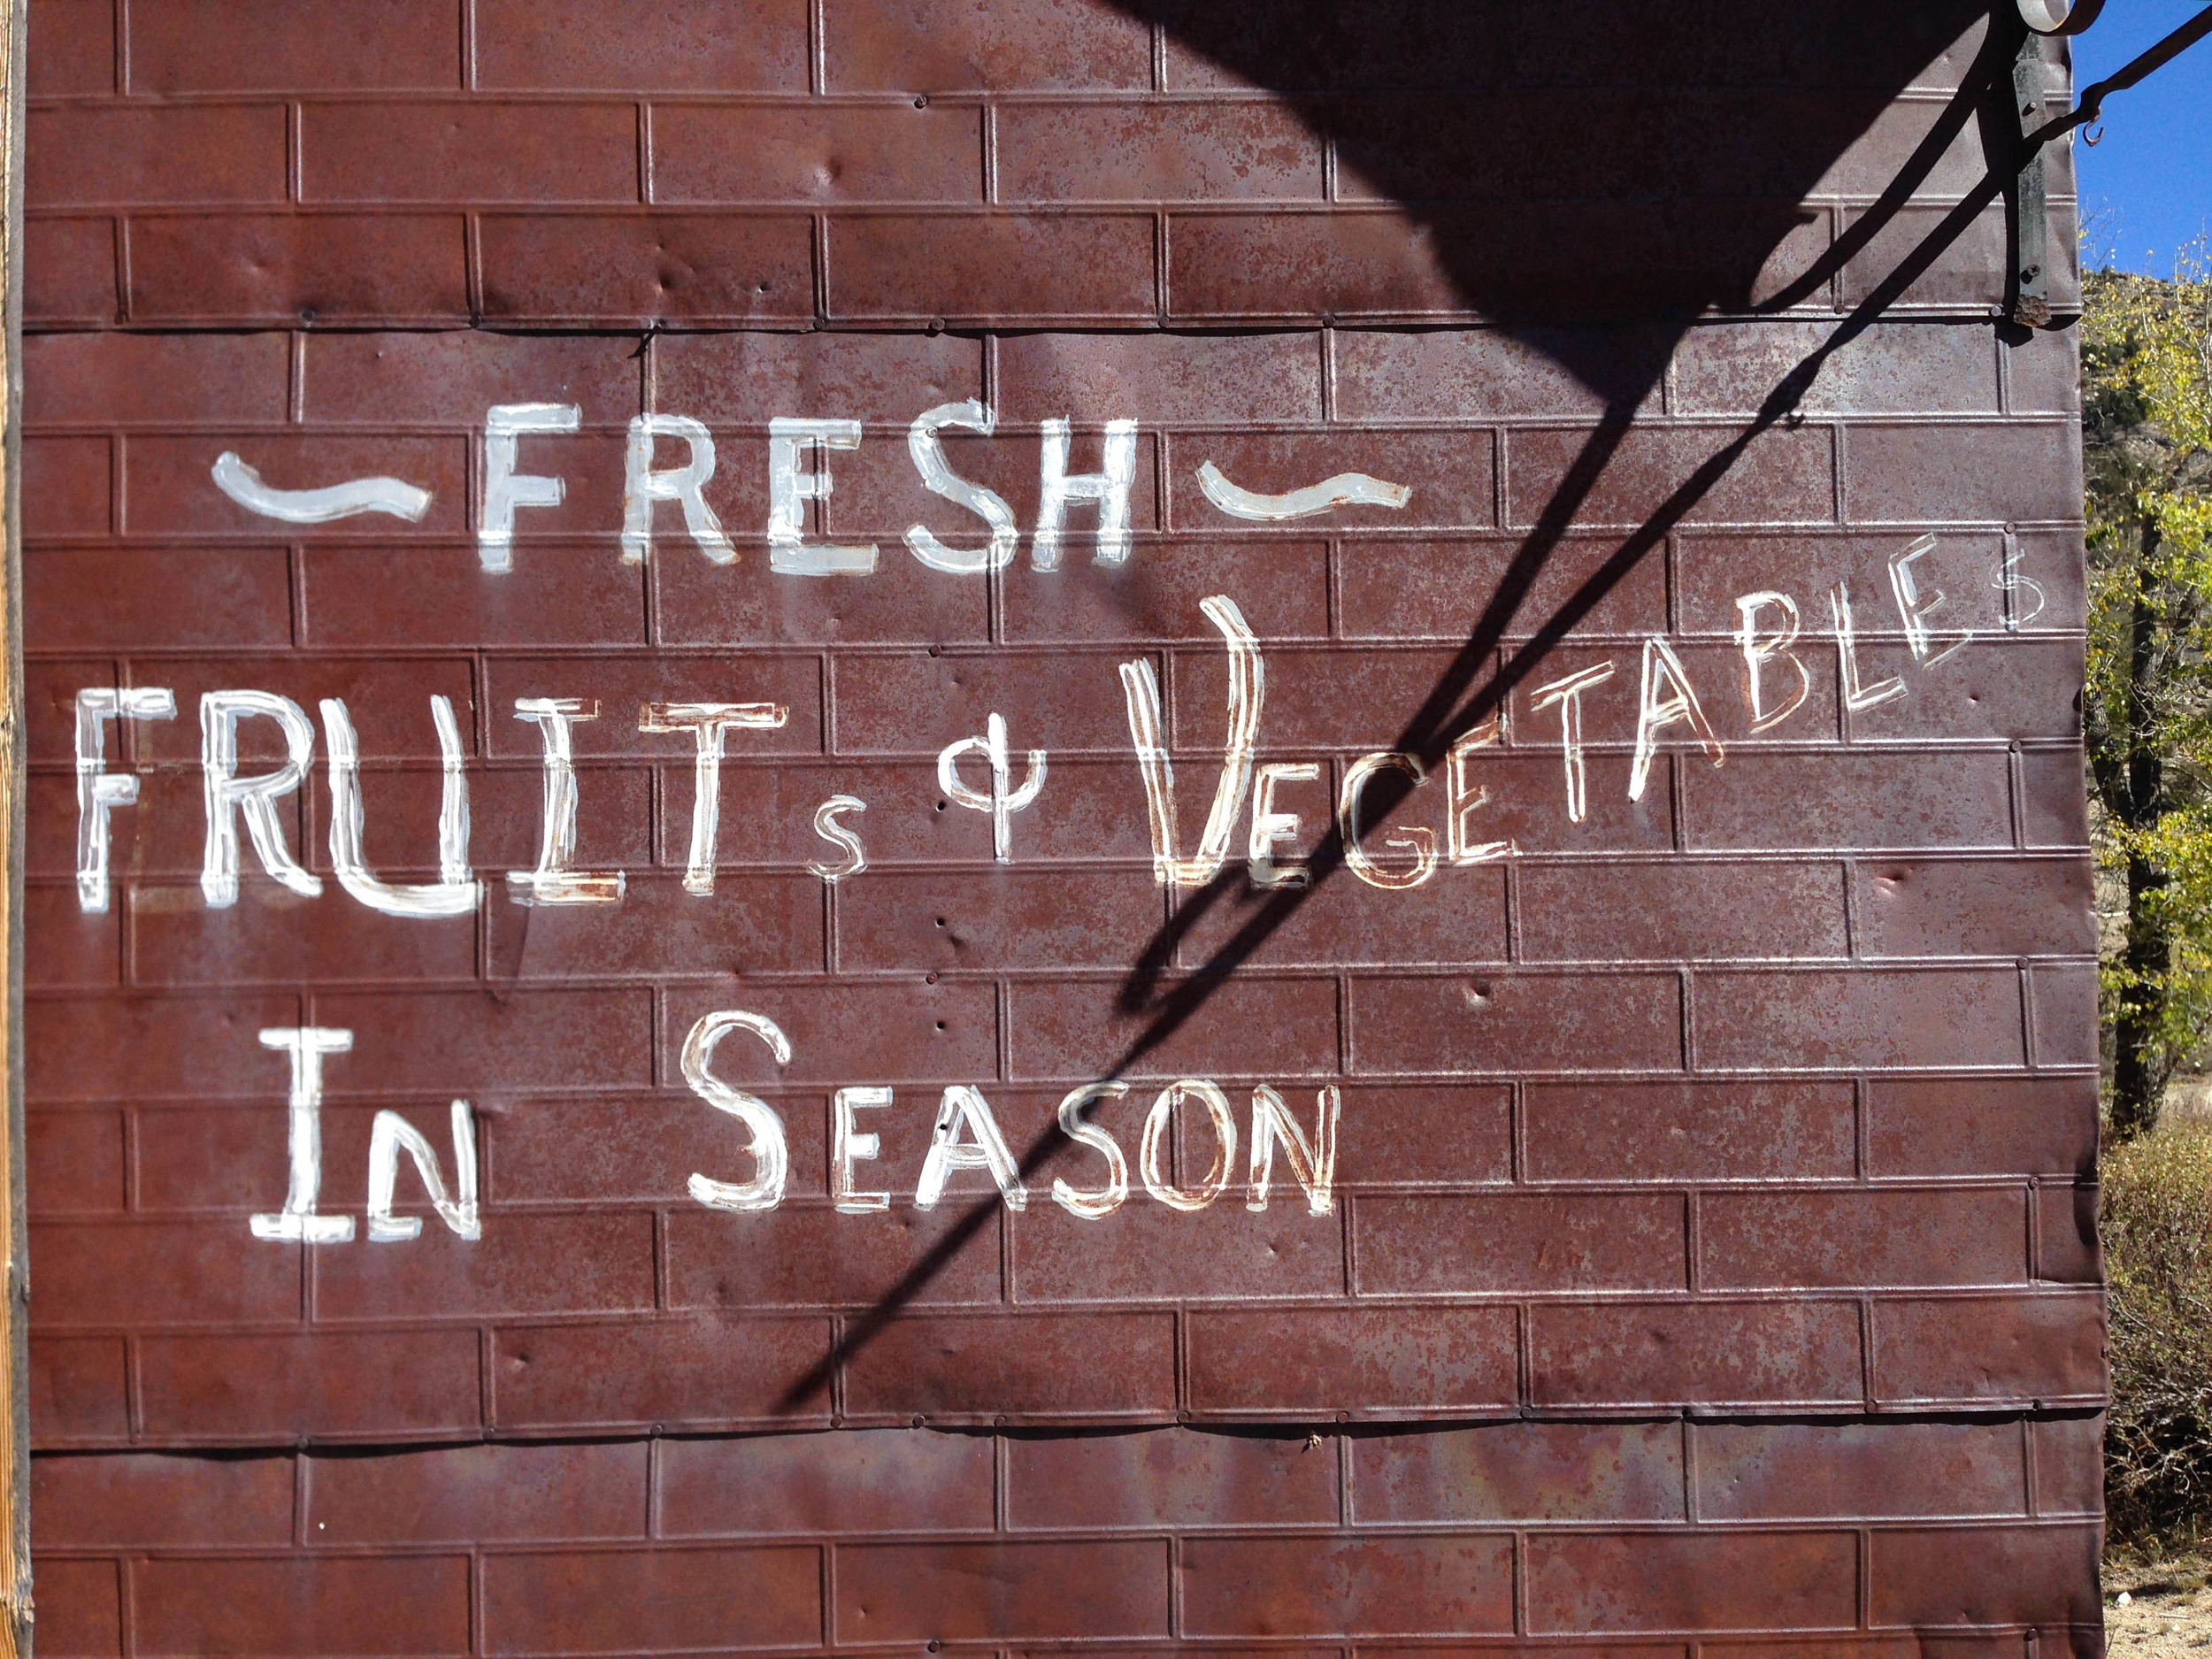 ~ FRESH ~
FRUITS & VEGETABLES
IN SEASON